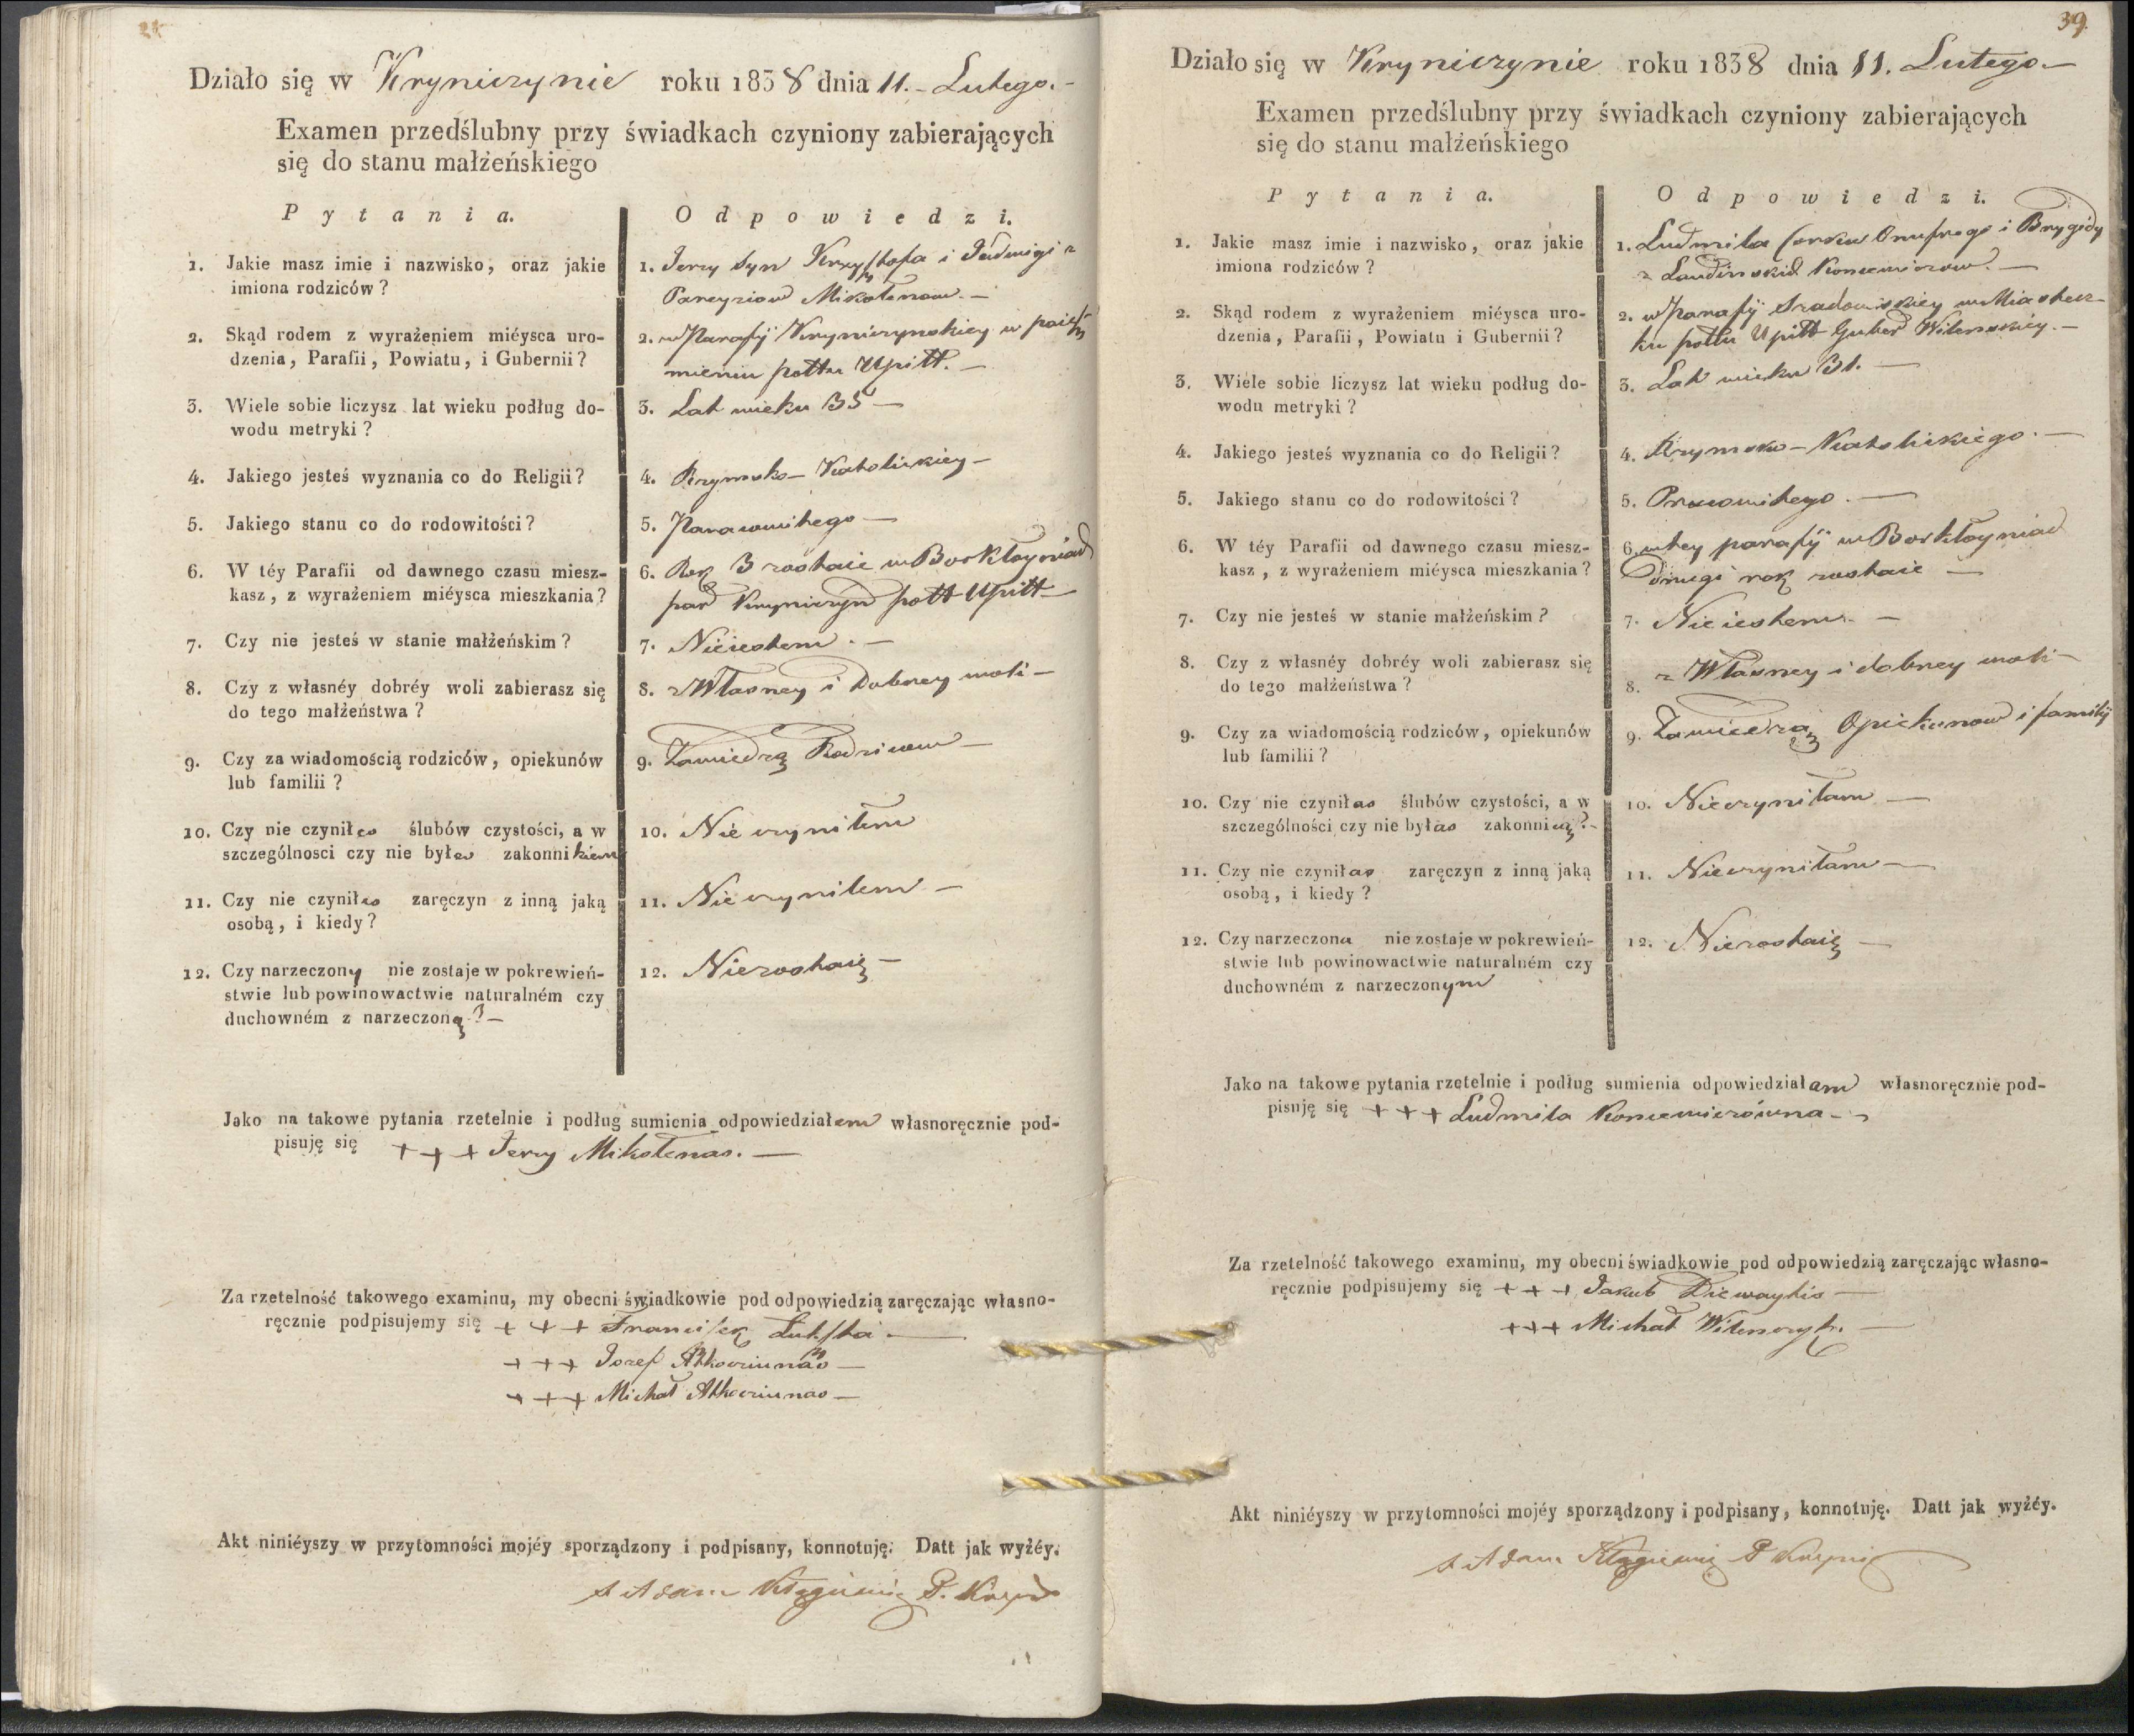 Działo się w Kryniczynie roku 1838 dnia 11. Lutego.
Examen przedślubny przy świadkach czyniony zabierających
się do stanu małżeńskiego
Pytania.
Odpowiedzi.
1. Jakie masz imie i nazwisko, oraz jakie
imiona rodziców?
1. Jerzy Syn Krzysztofa i Jadwigi z
Mikołenow. —
2. Skąd rodem z wyrażeniem miéysca uro-
dzenia, Parafii, Powiatu, i Gubernii?
2. w Parafij Kryniczynskiey w
pottu Upitt. —
3. Wiele sobie liczysz lat wieku podług do-
wodu metryki?
3. Lat wieku 35 —
4. Jakiego jesteś wyznania co do Religii?
4. Rzymsko-Katolickiey —
5. Jakiego stanu co do rodowitości?
5. Pracowitego —
6. W téy Parafii od dawnego czasu miesz-
kasz, z wyrażeniem miéysca mieszkania?
6. Rok 3 zostaie w Borkłoyniach
par Kryniczyn pott Upitt —
7. Czy nie jesteś w stanie małżeńskim?
7. Nieiestem. —
8. Czy z własnéy dobréy woli zabierasz się
do tego małżeństwa?
8. z Własney i Dobrey woli —
9. Czy za wiadomością rodziców, opiekunów
lub familii?
9. Zawiedzą Rodzicow —
10. Czy nie czyniłes ślubów czystości, a w
szczególnosci czy nie byłes zakonnikiem
10. Nie czyniłem
11. Czy nie czyniłes zaręczyn z inną jaką
osobą, i kiedy?
11. Nie czyniłem —
12. Czy narzeczony nie zostaje w pokrewień-
stwie lub powinowactwie naturalném czy
duchowném z narzeczoną? —
12. Niezostaię —
Jako na takowe pytania rzetelnie i podług sumienia odpowiedziałem własnoręcznie pod-
pisuję się +++ Jerzy Mikołenas. —
Za rzetelność takowego examinu, my obecni świadkowie pod odpowiedzią zaręczając własno-
ręcznie podpisujemy się +++ Franciszek Lukszta —
+++ Jozef Atkocziunas —
+++ Michał Atkocziunas —
Akt niniéyszy w przytomności mojéy sporządzony i podpisany, konnotuję. Datt jak wyżéy.
X Adam P.
39.
Działo się w Kryniczynie roku 1838 dnia 11. Lutego —
Examen przedślubny przy świadkach czyniony zabierających
się do stanu małżeńskiego
Pytania.
Odpowiedzi.
1. Jakie masz imie i nazwisko, oraz jakie
imiona rodziców?
1. Ludmila Corka Onufrego i Brygidy
z —
2. Skąd rodem z wyrażeniem miéysca uro-
dzenia, Parafii, Powiatu i Gubernii?
2. w Parafij w Miastecz-
ku pottu Upitt Guber Wilenskiey. —
3. Wiele sobie liczysz lat wieku podług do-
wodu metryki?
3. Lat wieku 31. —
4. Jakiego jesteś wyznania co do Religii?
4. Rzymsko-Katolickiego. —
5. Jakiego stanu co do rodowitości?
5. Pracowitego. —
6. W téy Parafii od dawnego czasu miesz-
kasz, z wyrażeniem miéysca mieszkania?
6. w tey parafij w Borkłoyniach
drugi rok zostaie —
7. Czy nie jesteś w stanie małżeńskim?
7. Nieiestem. —
8. Czy z własnéy dobréy woli zabierasz się
do tego małżeństwa?
8. z Własney i dobrey woli —
9. Czy za wiadomością rodziców, opiekunów
lub familii?
9. Zawiedzą Opiekunow i familij
10. Czy nie czyniłas ślubów czystości, a w
szczególności czy nie byłas zakonnicą? —
10. Nieczyniłam —
11. Czy nie czyniłas zaręczyn z inną jaką
osobą, i kiedy?
11. Nieczyniłam —
12. Czy narzeczona nie zostaje w pokrewień-
stwie lub powinowactwie naturalném czy
duchowném z narzeczonym
12. Niezostaię —
Jako na takowe pytania rzetelnie i podług sumienia odpowiedziałam własnoręcznie pod-
pisuję się +++ Ludmila
Za rzetelność takowego examinu, my obecni świadkowie pod odpowiedzią zaręczając własno-
ręcznie podpisujemy się +++ Jakub —
+++ Michał —
Akt niniéyszy w przytomności mojéy sporządzony i podpisany, konnotuję. Datt jak wyżéy.
X Adam P